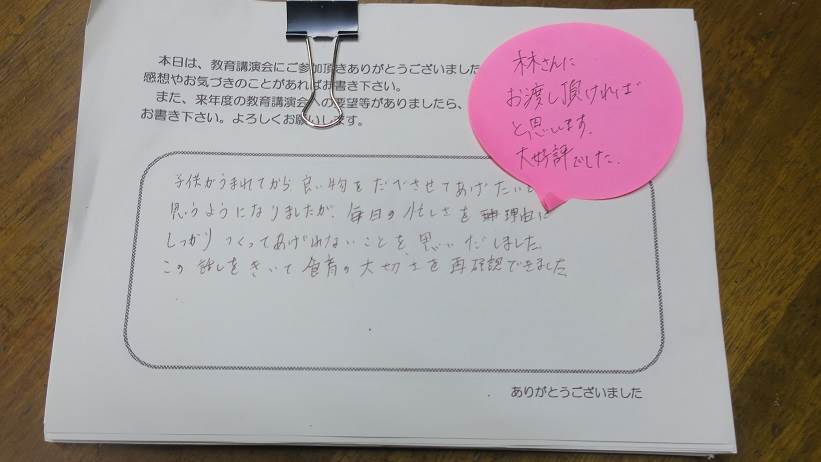 本日は、教育講演会にご参加頂きありがとうございました
感想やお気づきのことがあればお書き下さい。
また、来年度の教育講演会への要望等がありましたら、
お書き下さい。よろしくお願いします。
林さんに
お渡し頂ければ
と思います。
大好評でした。
子供がうまれてから良い物をたべさせてあげたいと
思うようになりましたが、毎日の忙しさを理由に
しっかりつくってあげれないことを、思いだしました
この話しをきいて食育の大切さを再確認できました
ありがとうございました